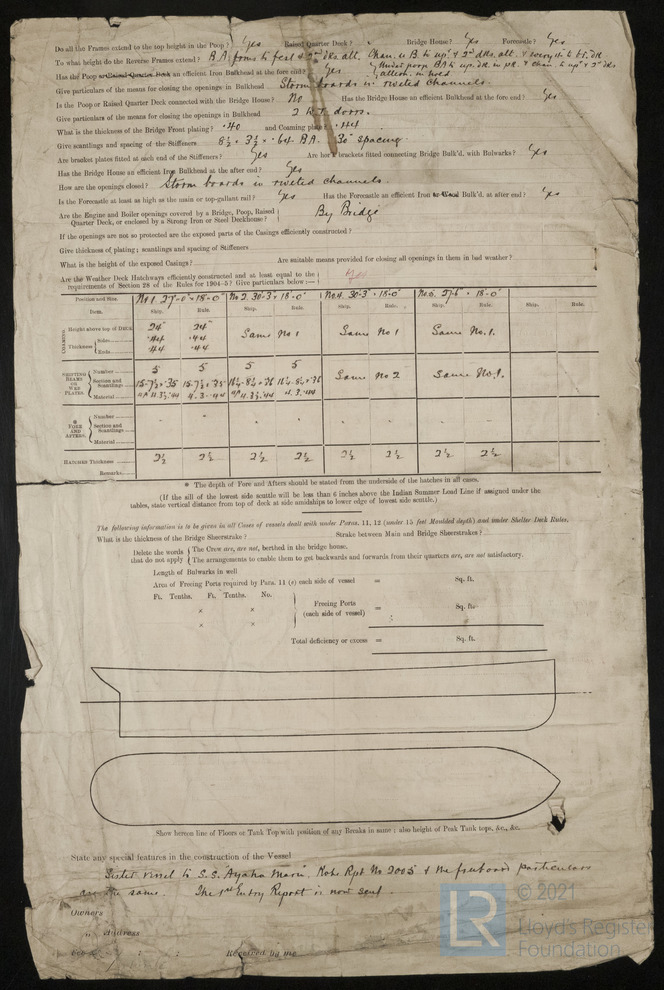 Do all the Frames extend to the top height in the Poop? Yes Raised Quarter Deck? Bridge House? Yes Forecastle? Yes
To what height do the Reverse Frames extend? B.A. frms to fcsl & 2nd dks alt. Chan. & B. to up. & 2nd dks. alt. &
Has the Poop or Raised Quarter Deck an efficient Iron Bulkhead at the fore end? Yes
Give particulars of the means for closing the openings in Bulkhead Storm boards in riveted channels.
Is the Poop or Raised Quarter Deck connected with the Bridge House? No Has the Bridge House an efficient Bulkhead at the fore end? Yes
Give particulars of the means for closing the openings in Bulkhead 2 W.T. doors.
What is the thickness of the Bridge Front plating? .40 and Coaming plate? .44
Give scantlings and spacing of the Stiffeners 8½ × 3½ × .64 B.A. 30" spacing.
Are bracket plates fitted at each end of the Stiffeners? Yes Are hor'l brackets fitted connecting Bridge Bulk'd. with Bulwarks? Yes
Has the Bridge House an efficient Bulkhead at the after end? Yes
How are the openings closed? Storm boards in riveted channels.
Is the Forecastle at least as high as the main or top-gallant rail? Yes Has the Forecastle an efficient Iron or Wood Bulk'd. at after end? Yes
Are the Engine and Boiler openings covered by a Bridge, Poop, Raised Quarter Deck, or enclosed by a Strong Iron or Steel Deckhouse? By Bridge
If the openings are not so protected are the exposed parts of the Casings efficiently constructed?
Give thickness of plating; scantlings and spacing of Stiffeners
What is the height of the exposed Casings? Are suitable means provided for closing all openings in them in bad weather?
Are the Weather Deck Hatchways efficiently constructed and at least equal to the
requirements of Section 28 of the Rules for 1904-5? Give particulars below:—
Position and Size. No 1. 27'-0" × 18'-0" No 2. 30'-3" × 18'-0" No 4. 30'-3" × 18'-0" No 5. 27'-6" × 18'-0"
Item. Ship. Rule. Ship. Rule. Ship. Rule. Ship. Rule. Ship. Rule.
COAMING. Height above top of DECK 24" 24" Same No 1 Same No 1 Same No. 1.
Thickness Sides .44 .44
Ends .44 .44
SHIFTING BEAMS OR WEB PLATES. Number 5 5 5 5 Same No 2 Same No. 1.
Section and Scantlings 15-7½ × .35 15-7½ × .35
Material
* FORE AND AFTERS. Number
Section and Scantlings
Material
HATCHES Thickness 2½ 2½ 2½ 2½ 2½ 2½ 2½ 2½
Remarks
* The depth of Fore and Afters should be stated from the underside of the hatches in all cases.
(If the sill of the lowest side scuttle will be less than 6 inches above the Indian Summer Load Line if assigned under the
tables, state vertical distance from top of deck at side amidships to lower edge of lowest side scuttle.)
The following information is to be given in all Cases of vessels dealt with under Paras. 11, 12 (under 15 feet Moulded depth) and under Shelter Deck Rules.
What is the thickness of the Bridge Sheerstrake? Strake between Main and Bridge Sheerstrakes?
Delete the words that do not apply
The Crew are, are not, berthed in the bridge house.
The arrangements to enable them to get backwards and forwards from their quarters are, are not satisfactory.
Length of Bulwarks in well
Area of Freeing Ports required by Para. 11 (e) each side of vessel = Sq. ft.
Ft. Tenths. Ft. Tenths. No.
× × Freeing Ports (each side of vessel) = Sq. ft.
× ×
Total deficiency or excess = Sq. ft.
Show hereon line of Floors or Tank Top with position of any Breaks in same; also height of Peak Tank tops, &c., &c.
State any special features in the construction of the Vessel
Sister vessel to S.S. "Ayaha Maru", Kobe Rpt. No 2005 & the freeboard particulars
are the same. The 1st Entry Report is now sent.
Owners
" Address
Received by me
© 2021
LR Lloyd's Register
Foundation